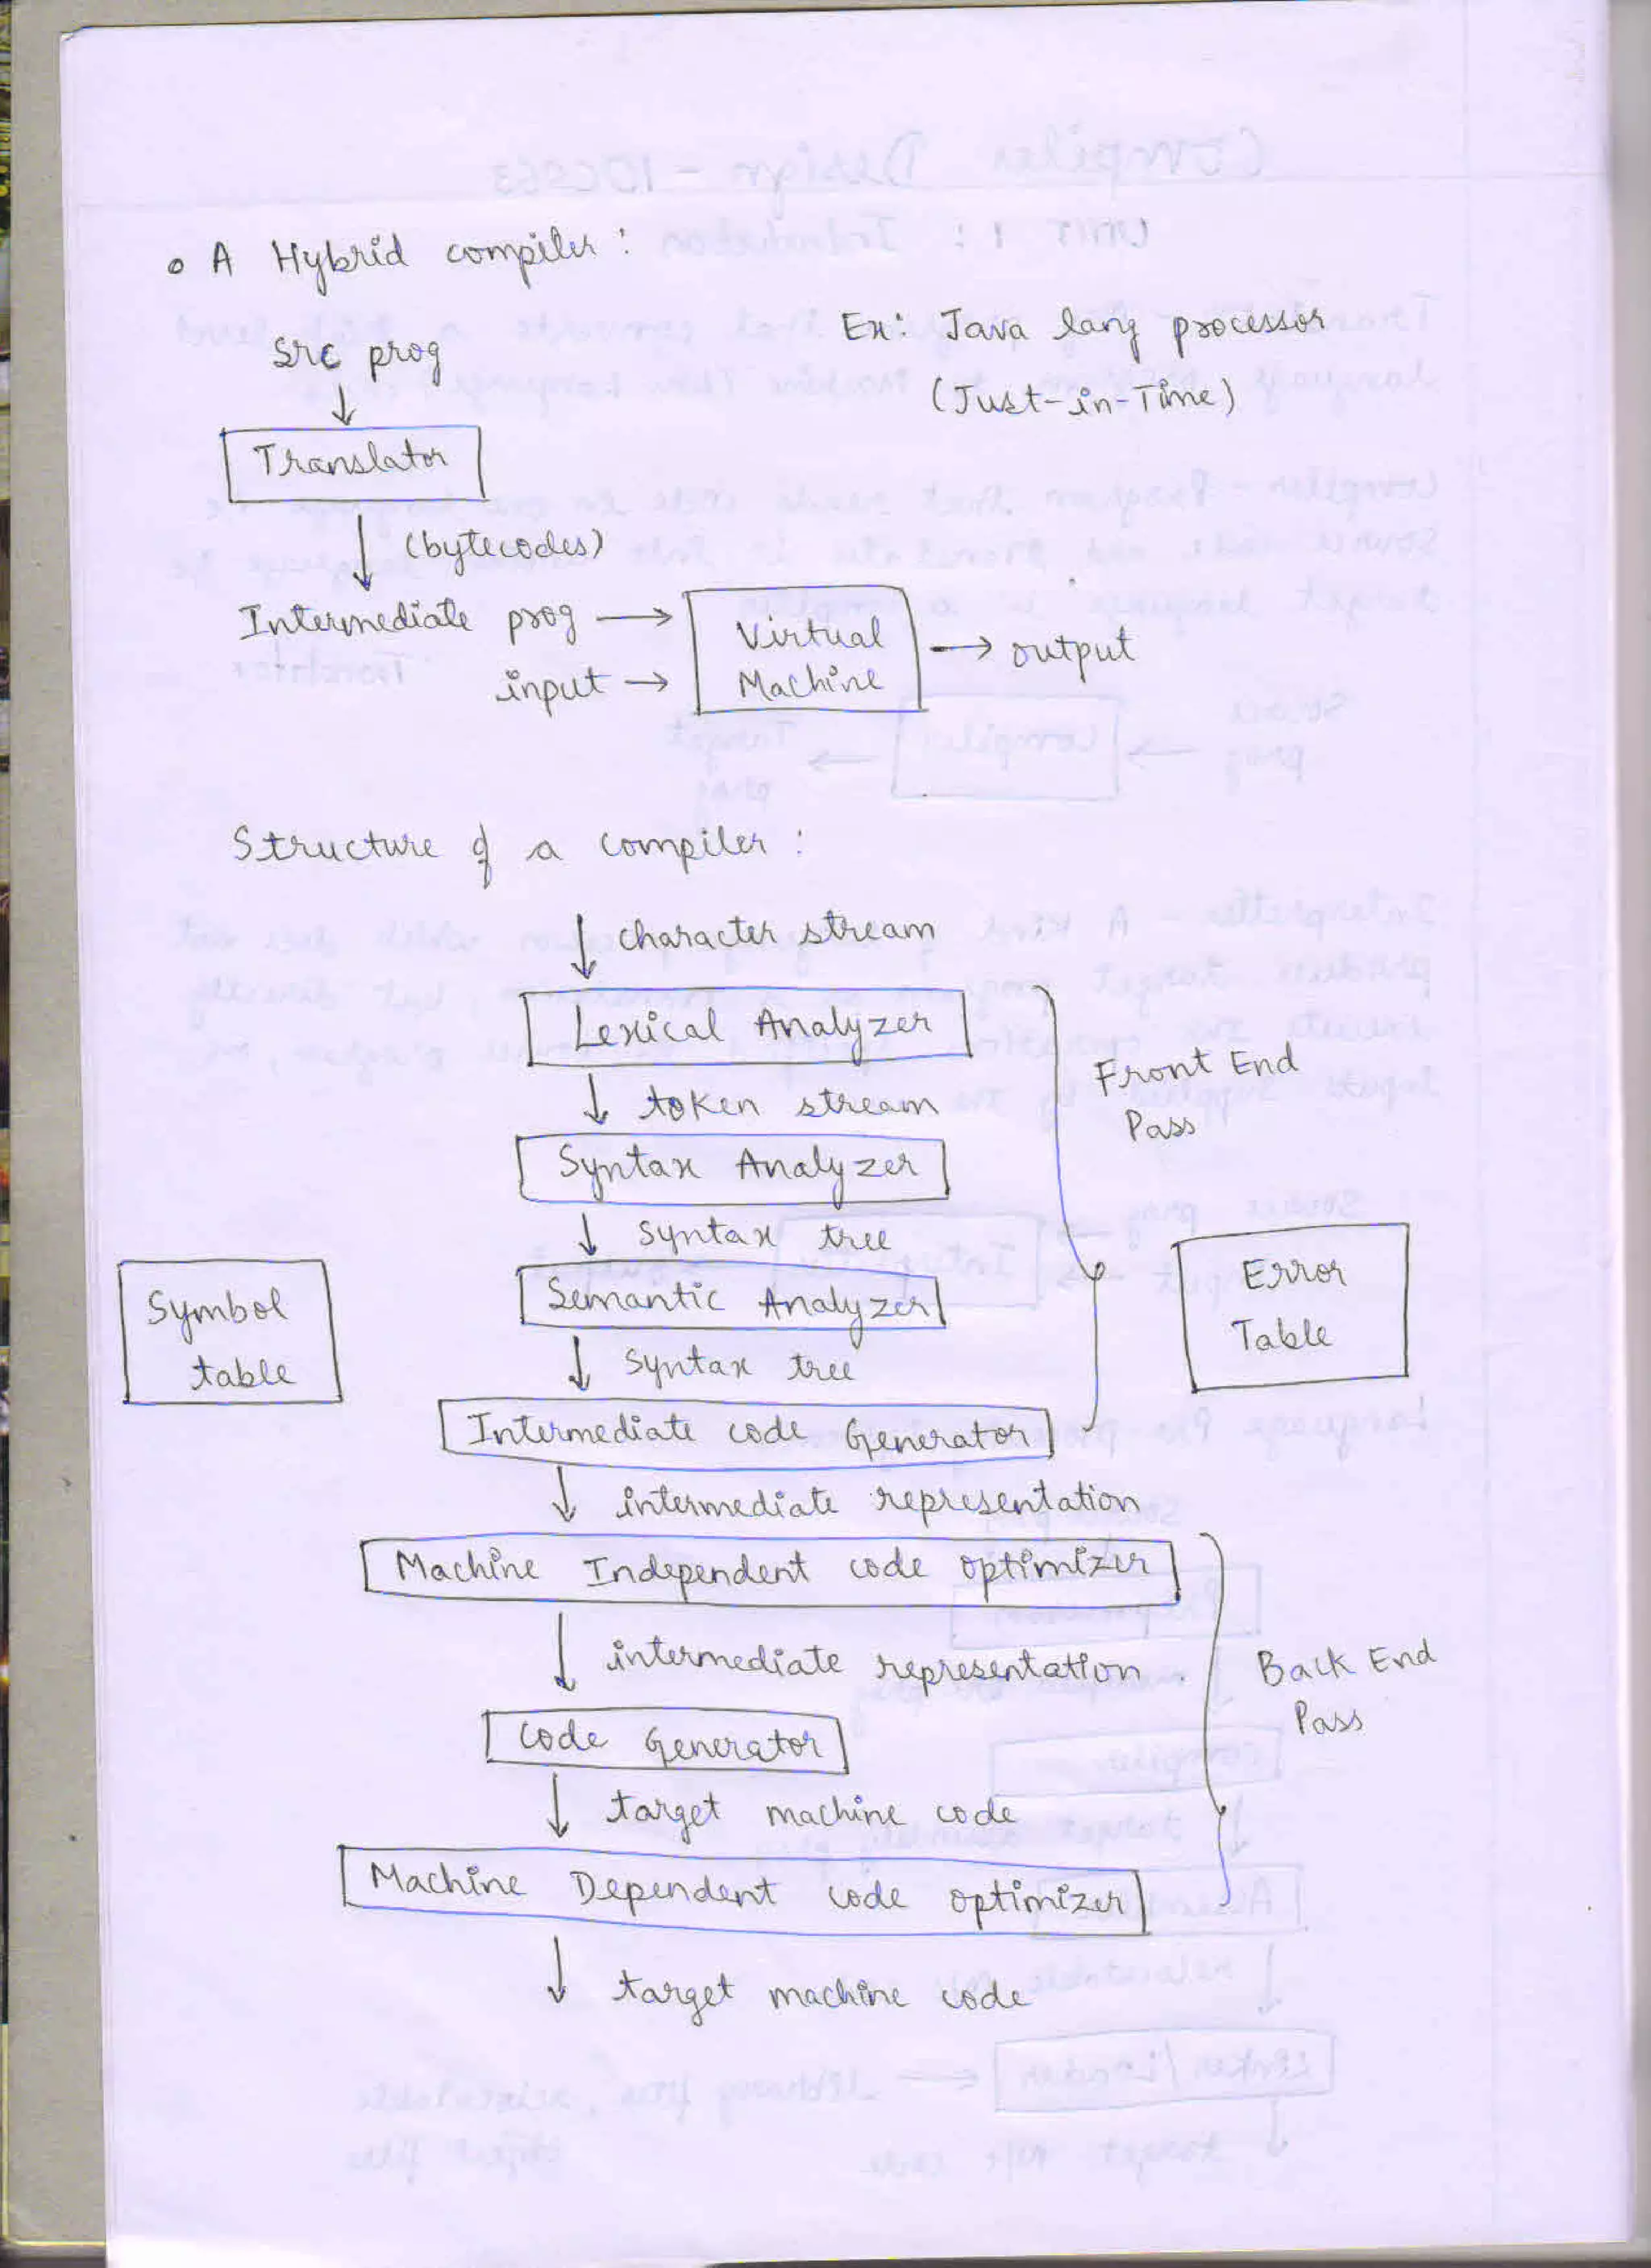 • A Hybrid compiler :
src prog
Ex: Java lang processor
(Just-in-Time)
Translator
(bytecodes)
Intermediate prog
input
Virtual
Machine
output
Structure of a compiler :
character stream
Lexical Analyzer
token stream
Front End
Pass
Syntax Analyzer
syntax tree
Semantic Analyzer
Symbol
table
Error
Table
syntax tree
Intermediate code Generator
intermediate representation
Machine Independent code optimizer
intermediate representation
Back End
Pass
Code Generator
target machine code
Machine Dependent code optimizer
target machine code